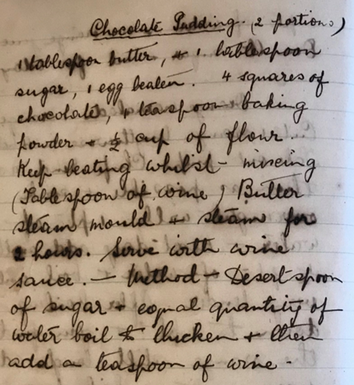 Chocolate Pudding. (2 portions)
1 tablespoon butter, + 1 tablespoon
sugar, 1 egg beaten. 4 squares of
chocolate, 4 teaspoon baking
powder + ½ cup of flour
Keep beating whilst - mixing
(Tablespoon of wine) Butter
steam mould + steam for
2 hours. Serve with wine
sauce. — Method — Desert spoon
of sugar + equal quantity of
water boil to thicken + then
add a teaspoon of wine -